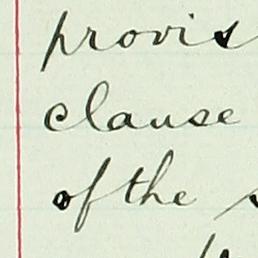 provis
clause
of the s